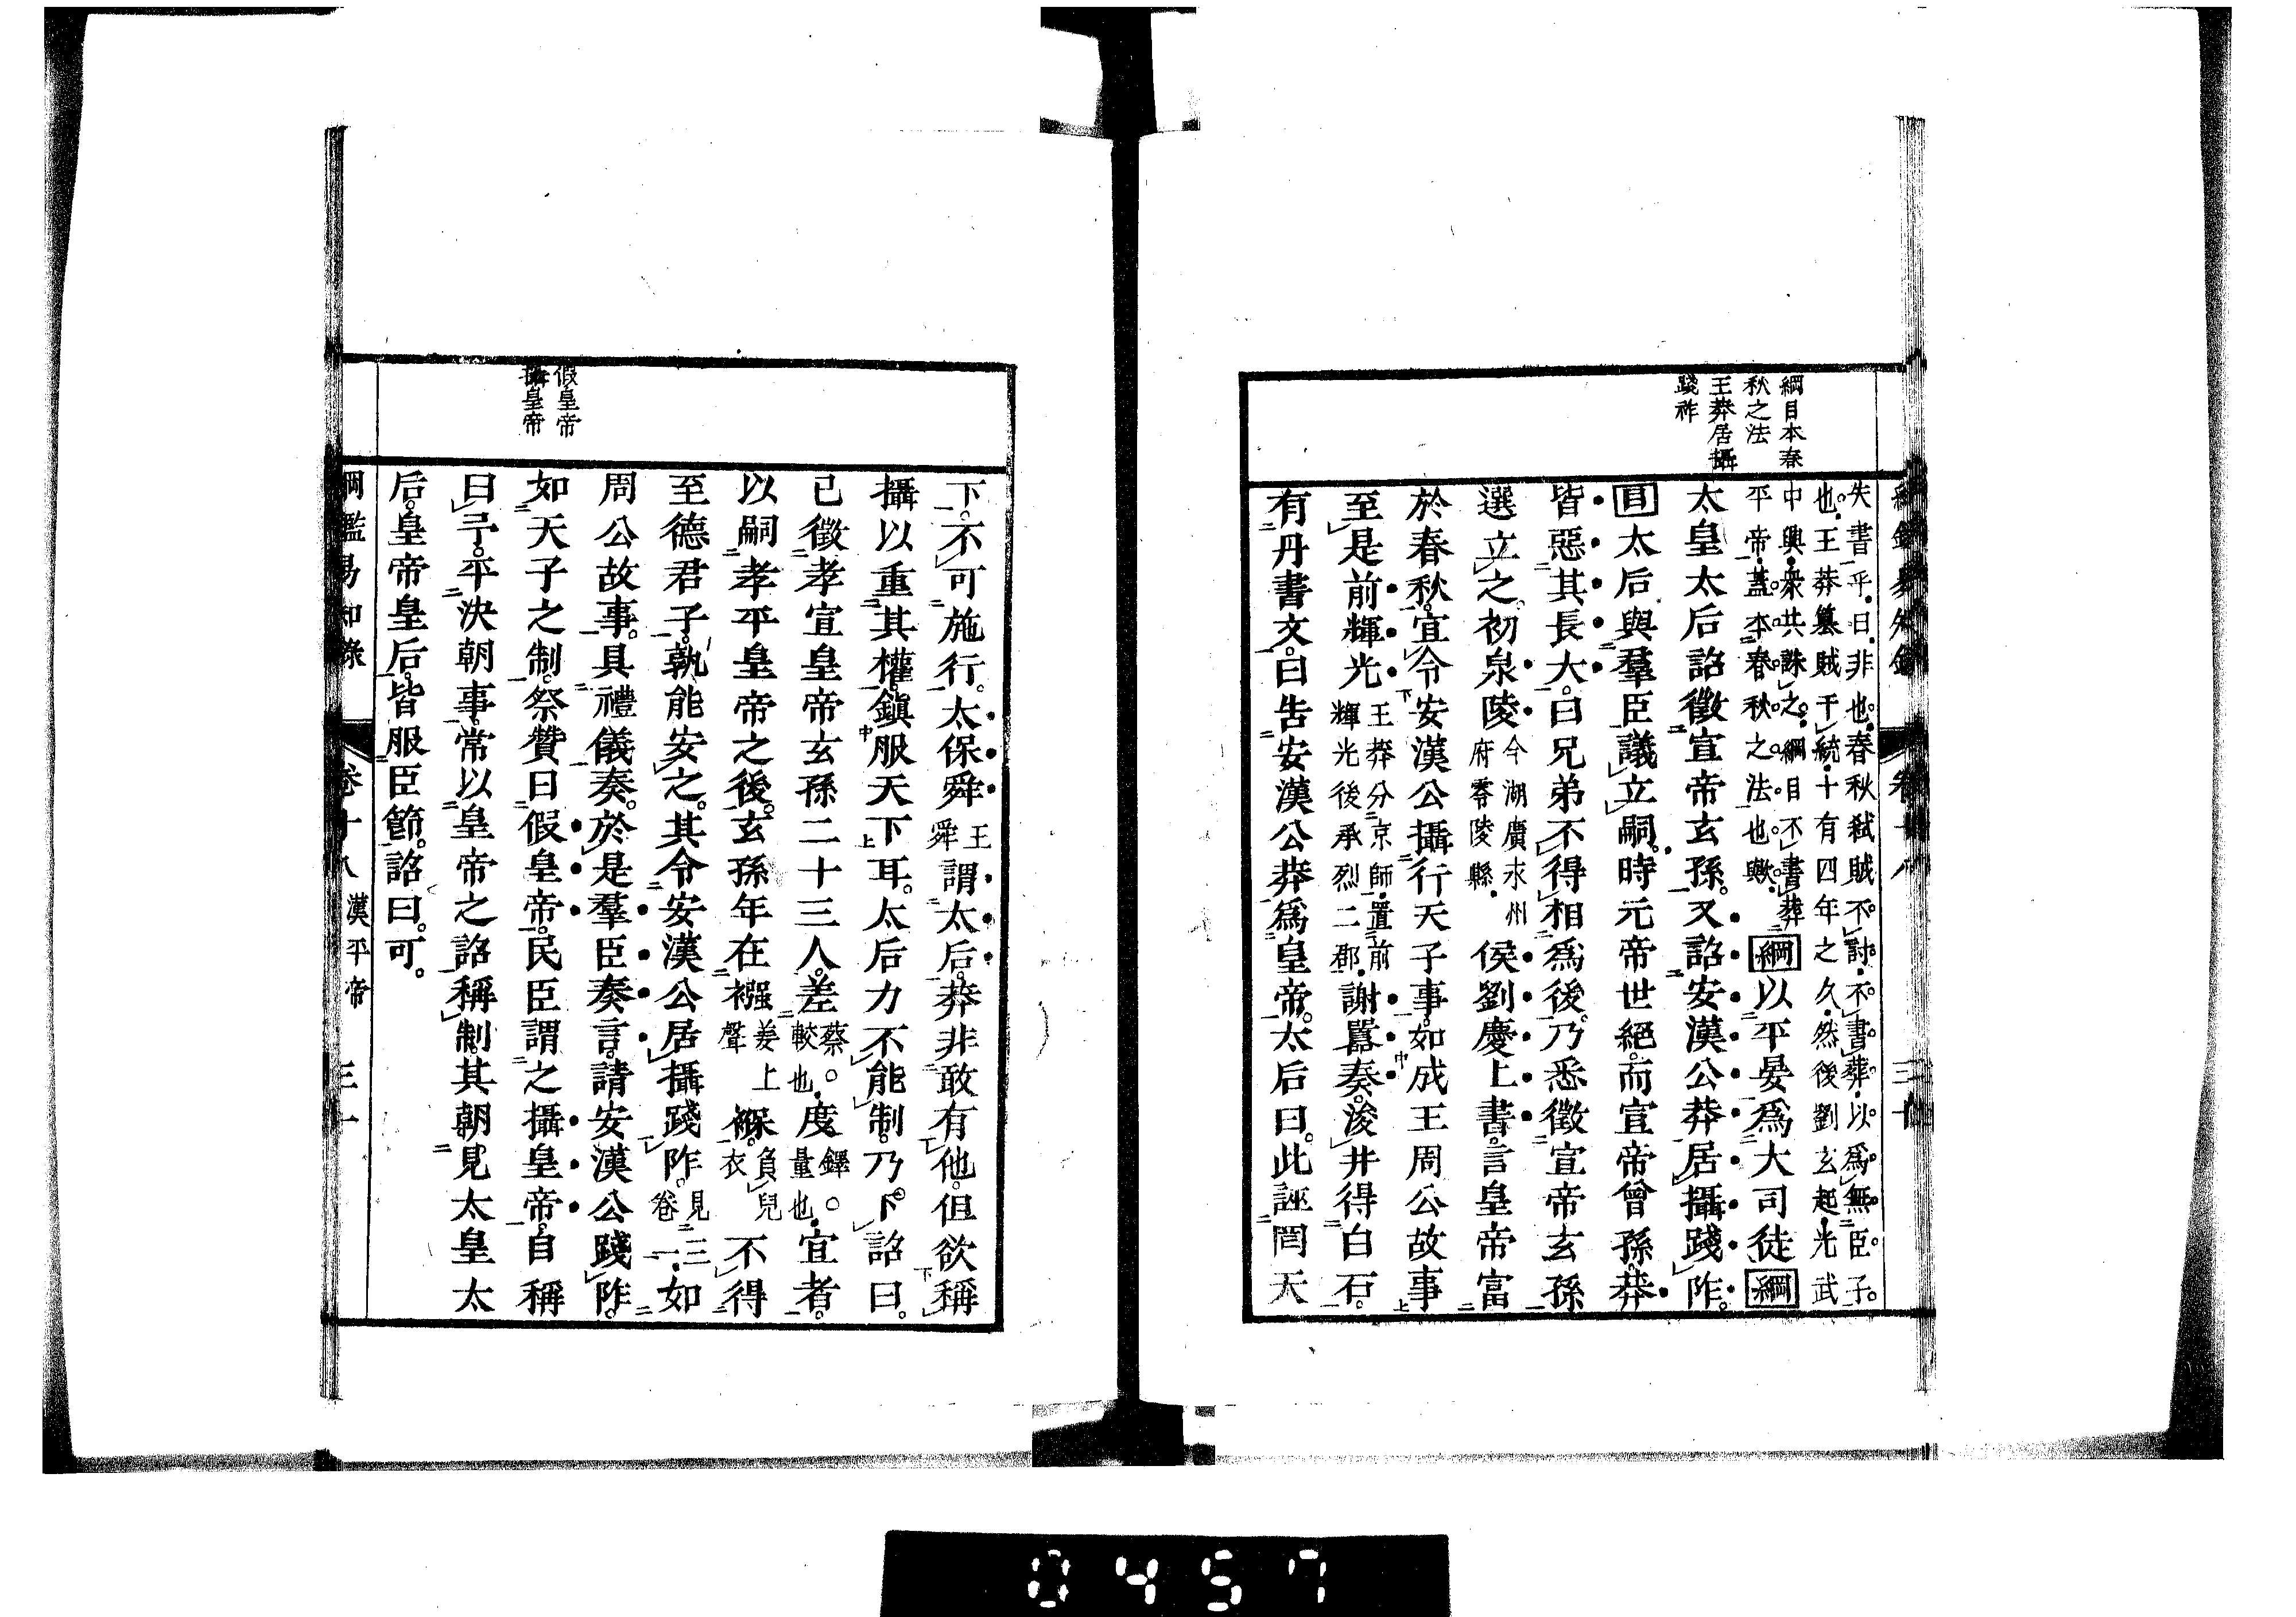 綱目本春
秋之法
王莽居攝
踐祚
失書乎曰非也春秋弑賊不討不書葬以爲無臣子
也王莽簒賊干統十有四年之久然後劉玄起光武
中興衆共誅之綱目不書葬
平帝蓋本春秋之法也歟綱以平晏爲大司徒綱
太皇太后詔徵宣帝玄孫又詔安漢公莽居攝踐阼
目太后與羣臣議立嗣時元帝世絕而宣帝曾孫莽
皆惡其長大曰兄弟不得相爲後乃悉徵宣帝玄孫
選立之初泉陵今湖廣永州府零陵縣侯劉慶上書言皇帝富
於春秋宜令安漢公攝行天子事如成王周公故事
至是前輝光王莽分京師置前輝光後承烈二郡謝囂奏浚井得白石
有丹書文曰告安漢公莽爲皇帝太后曰此誣罔天
卷十八
三十
假皇帝
攝皇帝
下不可施行太保舜王舜謂太后莽非敢有他但欲稱
攝以重其權鎭服天下耳太后力不能制乃下詔曰
已徵孝宣皇帝玄孫二十三人差蔡較也度鐸量也宜者
以嗣孝平皇帝之後玄孫年在襁姜上聲褓負兒衣不得
至德君子孰能安之其令安漢公居攝踐阼見三卷一如
周公故事具禮儀奏於是羣臣奏言請安漢公踐阼
如天子之制祭贊曰假皇帝民臣謂之攝皇帝自稱
曰予平決朝事常以皇帝之詔稱制其朝見太皇太
后皇帝皇后皆服臣節詔曰可
綱鑑易知錄
卷十八
漢平帝
三十
0457